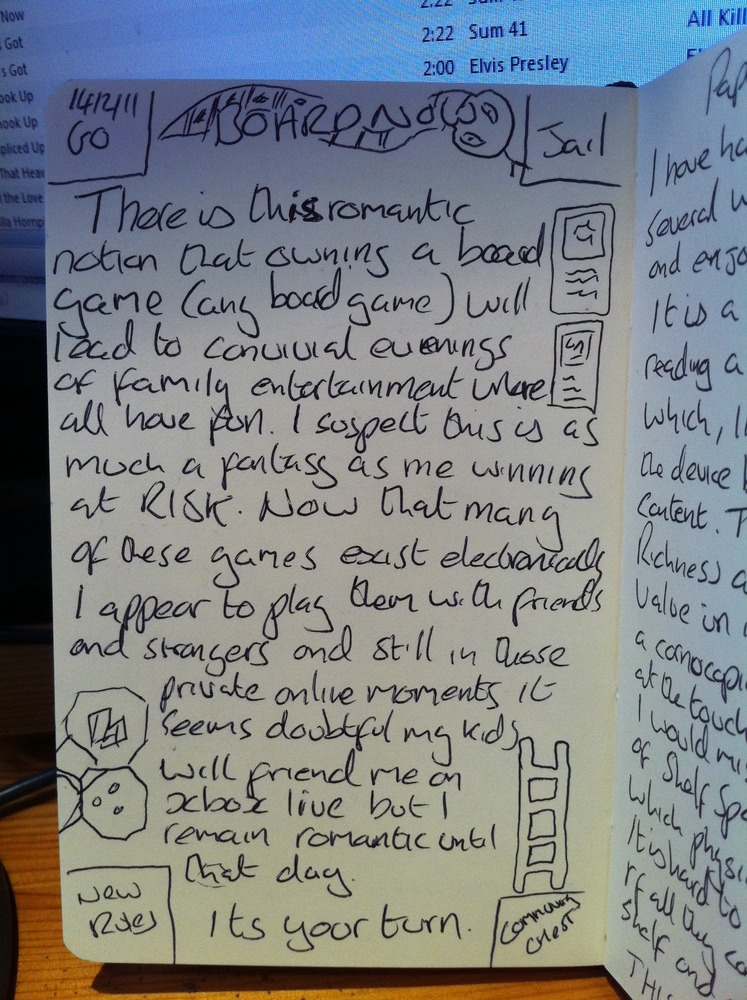 Now
s Got
's Got
ook Up
ook Up
pliced Up
That Hea
the Love
lla Hornp
2:22 Sum 41
2:00 Elvis Presley
All Kill
14/12/11
GO
BOARD NOW
Jail
There is this romantic
notion that owning a board
game (any board game) will
lead to convivial evenings
of family entertainment where
all have fun. I suspect this is as
much a fantasy as me winning
at RISK. Now that many
of these games exist electronically
I appear to play them with friends
and strangers and still in those
private online moments it
seems doubtful my kids
will friend me on
xbox live but I
remain romantic until
that day.
Its your turn.
New
Rules
Community
Chest
Pap
I have ha
several w
and enjo
It is a
reading a
which, I
the device b
content. T
Richness a
Value in
a cornocopi
at the touch
I would mi
of Shelf Spa
which physi
It is hard to
if all they co
shelf and
THi